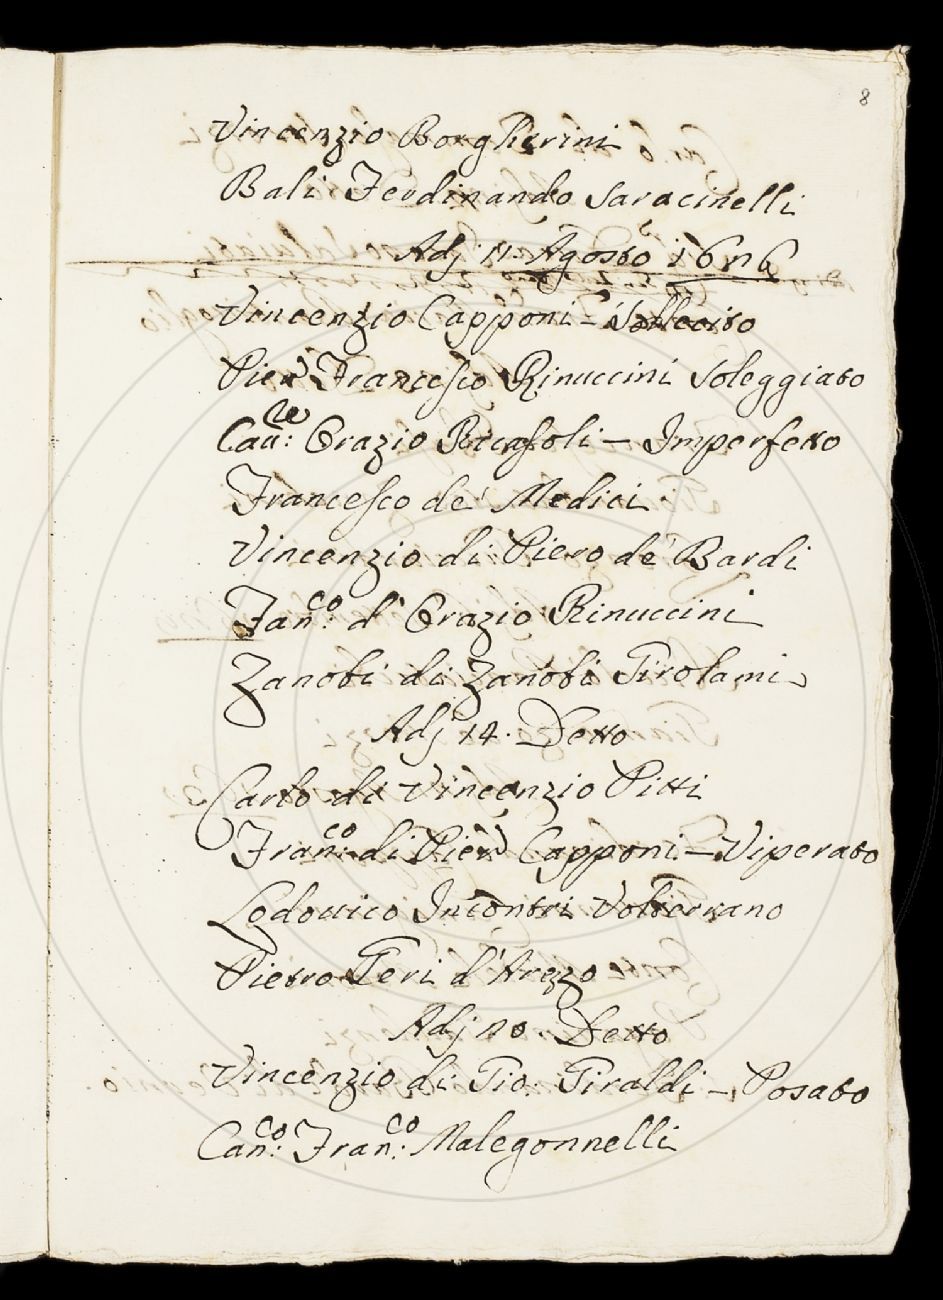 8
Vincenzio Borgherini
Bali Ferdinando Saracinelli
Adj 11. Agosto 1626
Vincenzio Capponi - Sollecito
Pier Francesco Rinuccini Soleggiato
Cau:re Orazio Ricasoli - Imperfetto
Francesco de' Medici
Vincenzio di Piero de' Bardi
Fran:co d' Orazio Rinuccini
Zanobi di Zanobi Girolami
Adj 14. Detto
Carlo di Vincenzio Pitti
Fran:co di Pier Capponi - Viperato
Lodouico Incontri Volterrano
Pietro Geri d'Arezo
Adj 20. Detto
Vincenzio di Gio: Giraldi - Posato
Can:co Fran:co Malegonnelli